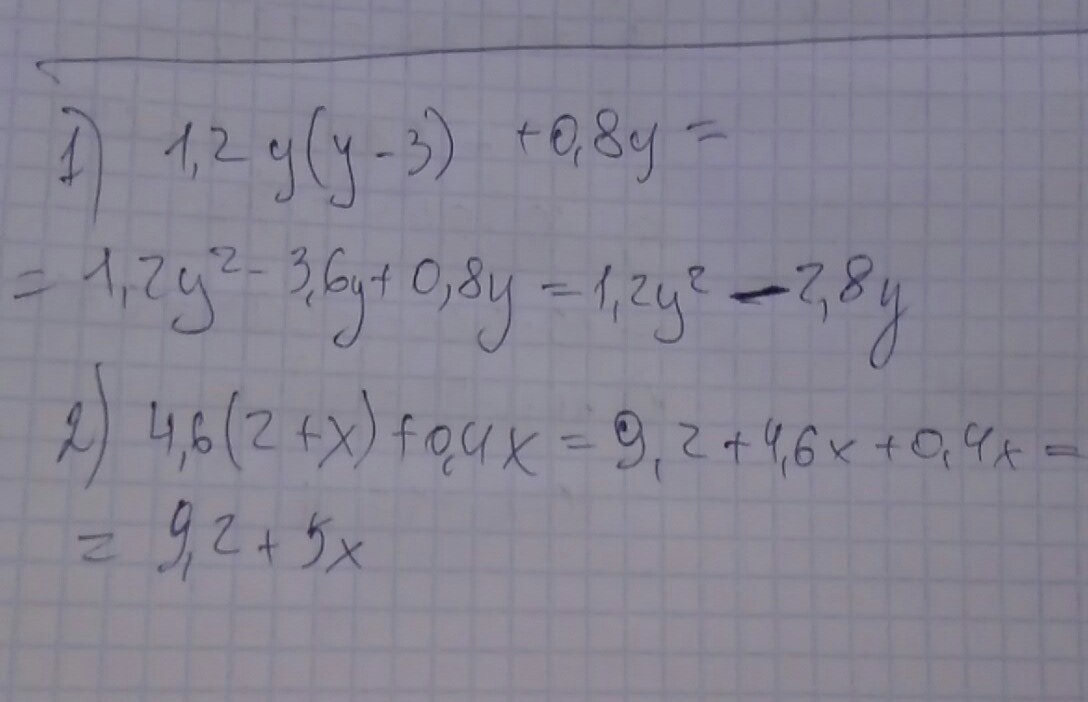 1) 1,2 y(y-3) +0,8y =
= 1,2y² - 3,6y + 0,8y = 1,2y² - 2,8y
2) 4,6(2+x)+0,4x = 9,2+4,6x+0,4x =
= 9,2+5x